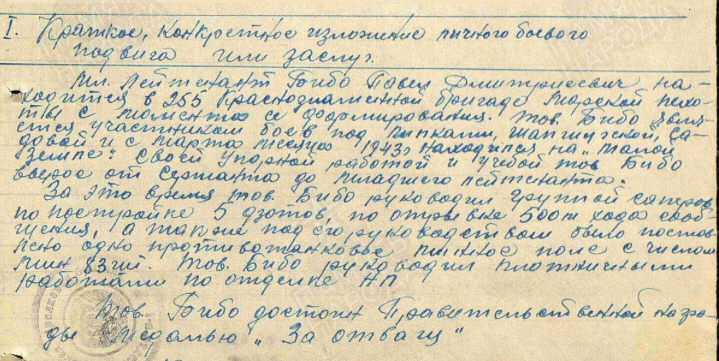 I. Краткое, конкретное изложение личного боевого
подвига или заслуг.
Мл. Лейтенант Бибо Павел Дмитриевич на-
ходится в 255 Краснознаменной бригаде Морской пехо-
ты с момента ее формирования. тов. Бибо явля-
ется участником боев под Липками, Шапшугской, Са-
довой и с марта месяца 1943г находился на "Малой
Земле". Своей упорной работой и учебой тов Бибо
вырос от сержанта до младшего лейтенанта.
За это время тов. Бибо руководил группой саперов
по постройке 5 дзотов, по отрывке 500 м хода сооб-
щения, а также под его руководством было постав-
лено одно противотанковое минное поле с числом
мин 83 шт. Тов. Бибо руководил плотничными
работами по отделке НП
Тов. Бибо достоин Правительственной награ-
ды медалью "За отвагу"